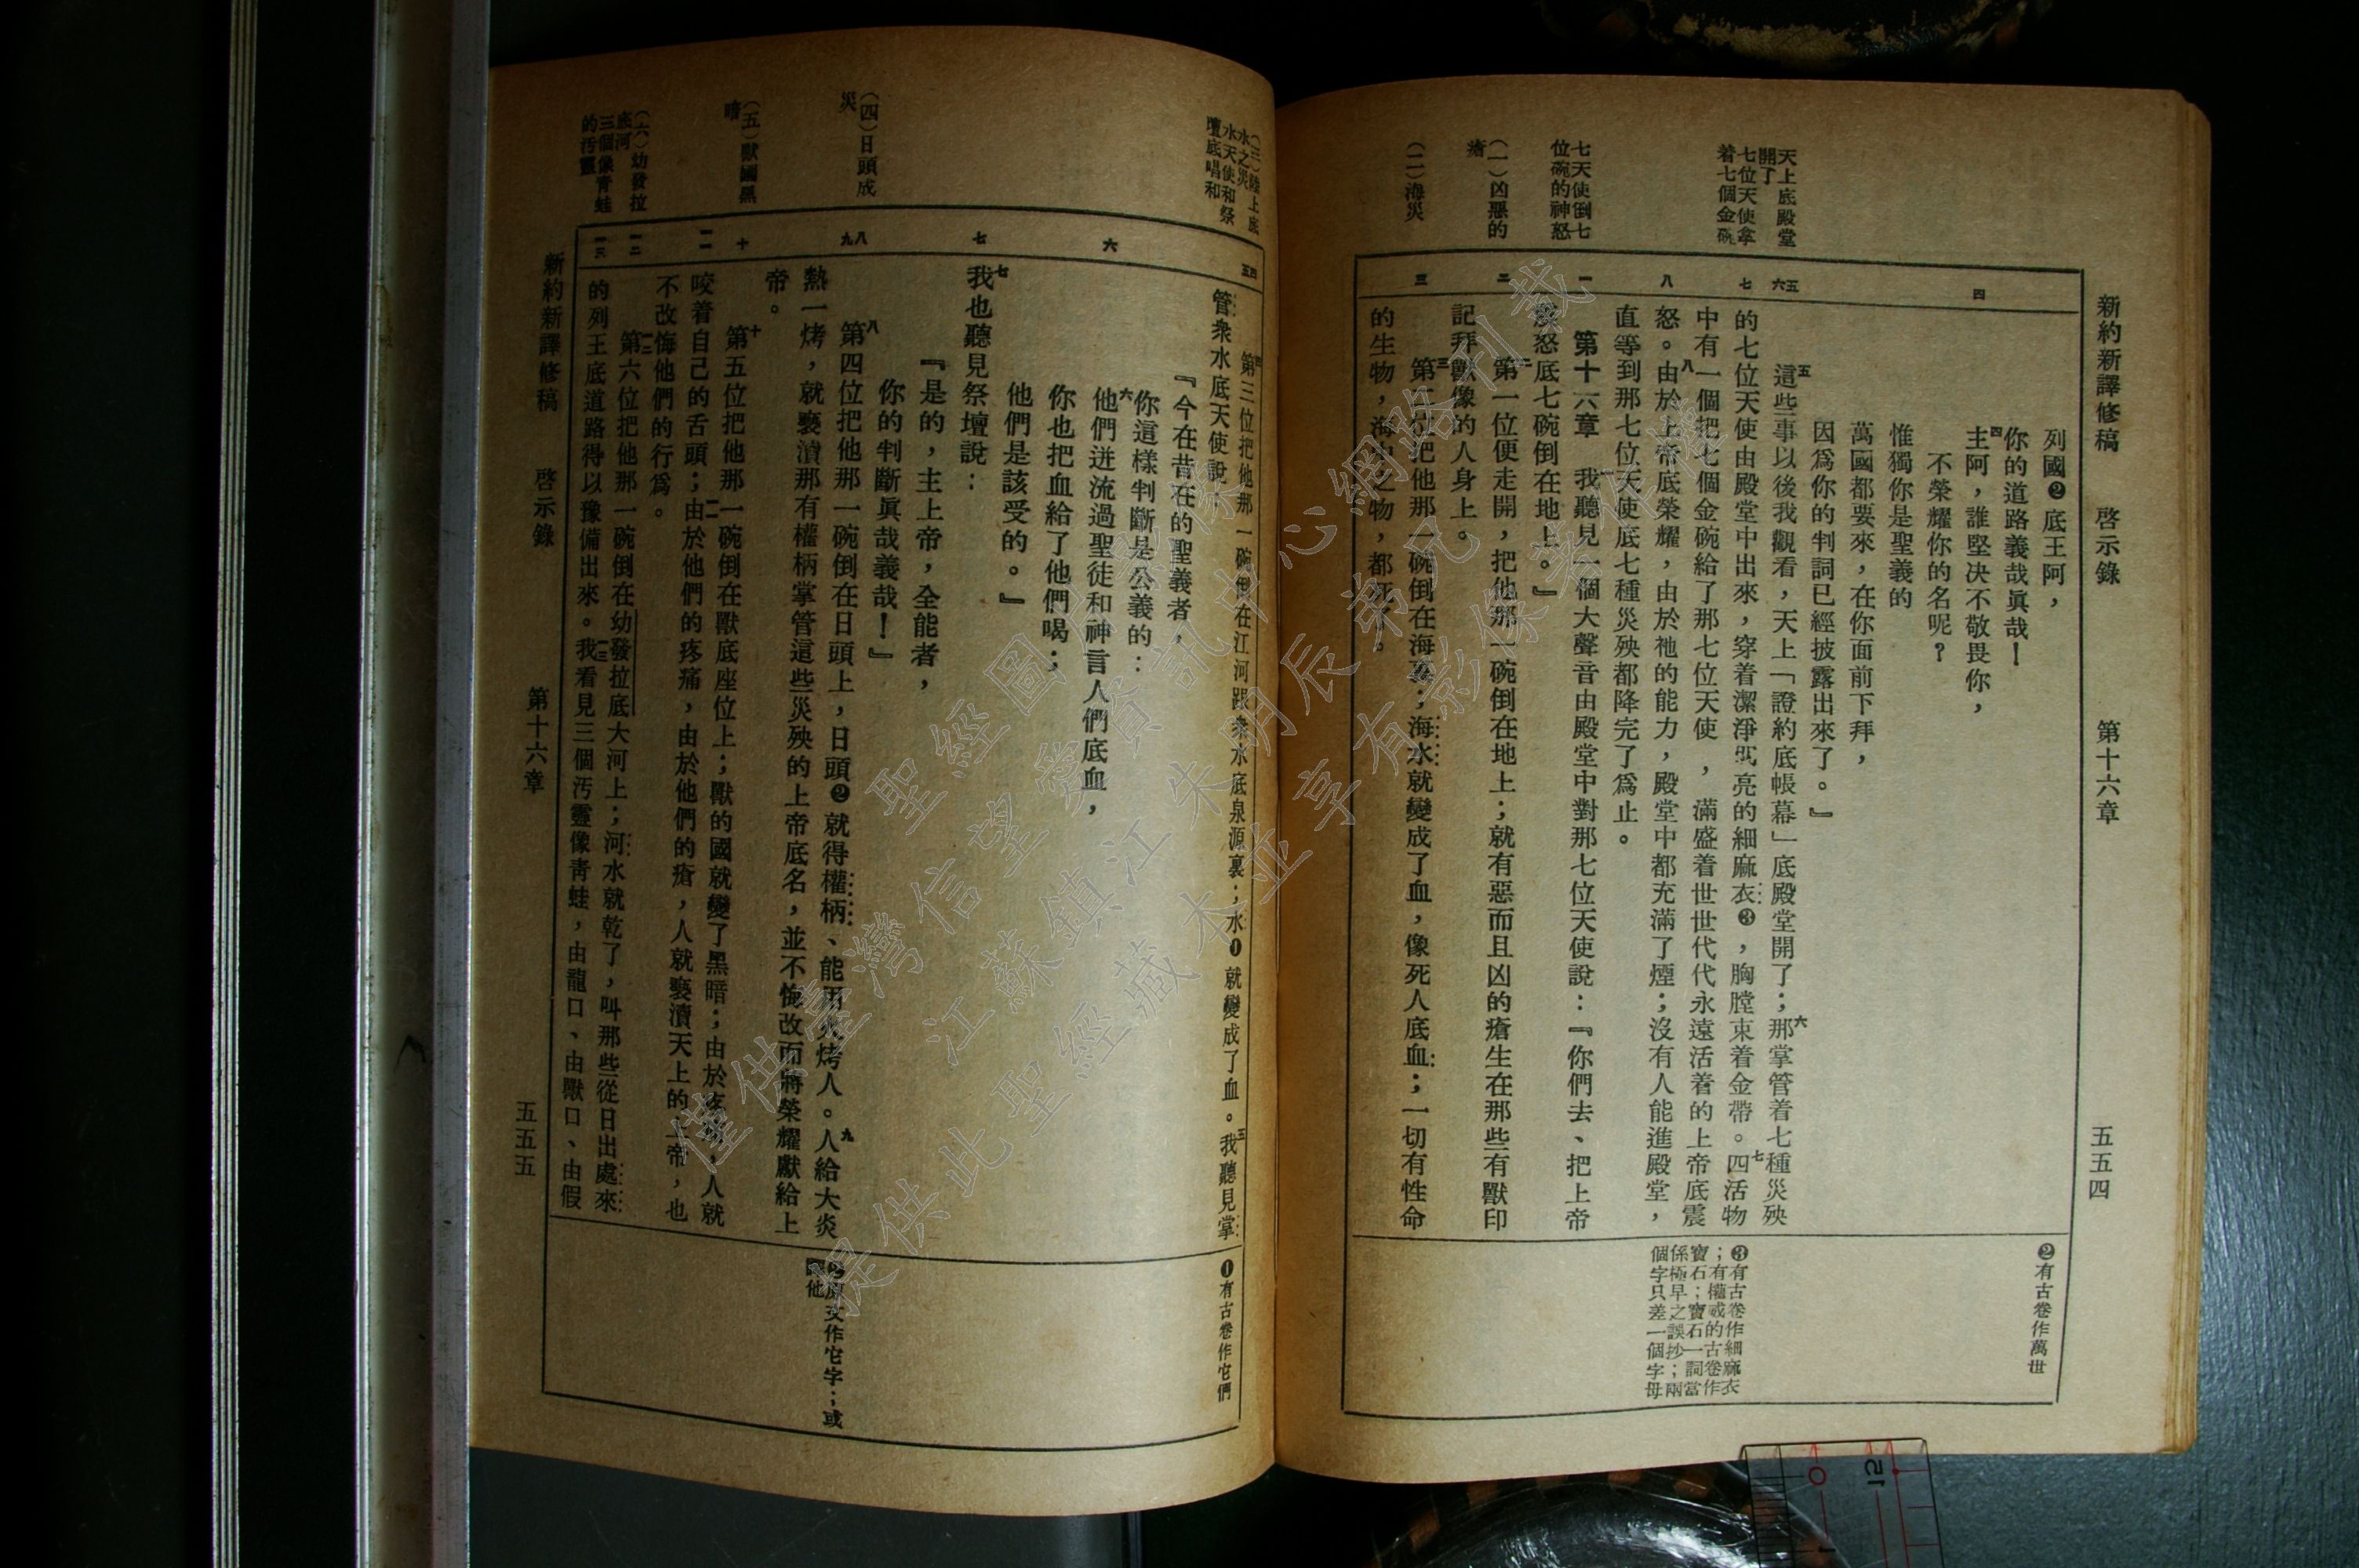 新約新譯修稿 啓示錄 第十六章 五五四
列國❷底王阿，
你的道路義哉眞哉！
四主阿，誰堅决不敬畏你，
不榮耀你的名呢？
惟獨你是聖義的
萬國都要來，在你面前下拜，
因爲你的判詞已經披露出來了。』
五這些事以後我觀看，天上「證約底帳幕」底殿堂開了；六那掌管着七種災殃
的七位天使由殿堂中出來，穿着潔淨亮的細麻衣❸，胸膛束着金帶。七四活物
中有一個把七個金碗給了那七位天使，滿盛着世世代代永遠活着的上帝底震
怒。八由於上帝底榮耀，由於祂的能力，殿堂中都充滿了煙；沒有人能進殿堂，
直等到那七位天使底七種災殃都降完了爲止。
第十六章 一我聽見一個大聲音由殿堂中對那七位天使說：『你們去、把上帝
震怒底七碗倒在地上。』
二第一位便走開，把他那一碗倒在地上；就有惡而且凶的瘡生在那些有獸印
記拜獸像的人身上。
三第二位把他那一碗倒在海裏；海水就變成了血，像死人底血；一切有性命
的生物，海中之物，都死了。
天上底殿堂
開了
七位天使拿
着七個金碗
七天使倒七
位碗的神怒
（一）凶惡的
瘡
（二）海災
四
五
六
七
八
一
二
三
❷有古卷作萬世
❸有古卷作細麻衣
；有權威的古卷作
寶石；寶石一詞當
係極早之誤抄；兩
個字只差一個字母
四第三位把他那一碗倒在江河跟衆水底泉源裏；水❶就變成了血。五我聽見掌
管衆水底天使說：
『今在昔在的聖義者，
你這樣判斷是公義的：
六他們迸流過聖徒和神言人們底血，
你也把血給了他們喝；
他們是該受的。』
七我也聽見祭壇說：
『是的，主上帝，全能者，
你的判斷眞哉義哉！』
八第四位把他那一碗倒在日頭上，日頭❷就得權柄、能用火烤人。九人給大炎
熱一烤，就褻瀆那有權柄掌管這些災殃的上帝底名，並不悔改而將榮耀獻給上
帝。
十第五位把他那一碗倒在獸底座位上；獸的國就變了黑暗；由於疼痛，人就
咬着自己的舌頭；一一由於他們的疼痛，由於他們的瘡，人就褻瀆天上的上帝，也
不改悔他們的行爲。
一二第六位把他那一碗倒在幼發拉底大河上；河水就乾了，叫那些從日出處來
的列王底道路得以豫備出來。一三我看見三個汚靈像青蛙，由龍口、由獸口、由假
（三）陸上底
水之災
水天使和祭
壇底唱和
（四）日頭成
災
（五）獸國黑
暗
（六）幼發拉
底河
三個像青蛙
的汚靈
四
五
六
七
八
九
十
一一
一二
一三
❶有古卷作它們
❷原文作它字；或
他
新約新譯修稿 啓示錄 第十六章 五五五
僅供臺灣信望愛資訊中心網路刊載
江蘇鎮江朱明辰弟兄
提供此聖經藏本並享有影像著作權
0
15